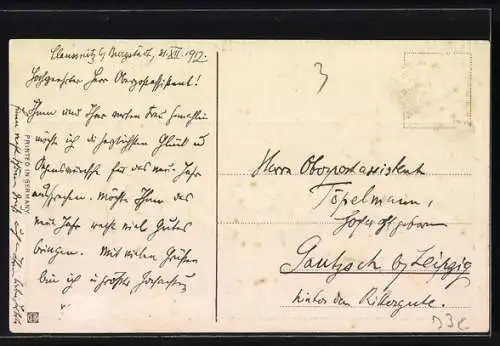 Clausnitz b/ Burgstädt, 31. XII. 1912.
Hochgeehrter Herr Oberpostassistent!
Ihnen und Ihrer werten Frau Gemahlin
möchte ich die herzlichsten Glück u
Segenswünsche für das neue Jahr
aussprechen. Möchte Ihnen das
neue Jahr recht viel Gutes
bringen. Mit vielen Grüßen
bin ich in größter Hochachtung
PRINTED IN GERMANY
3
Herrn Oberpostassistent
Töpelmann,
Hochwohlgeboren
Gautzsch b/ Leipzig
hinter dem Rittergute.